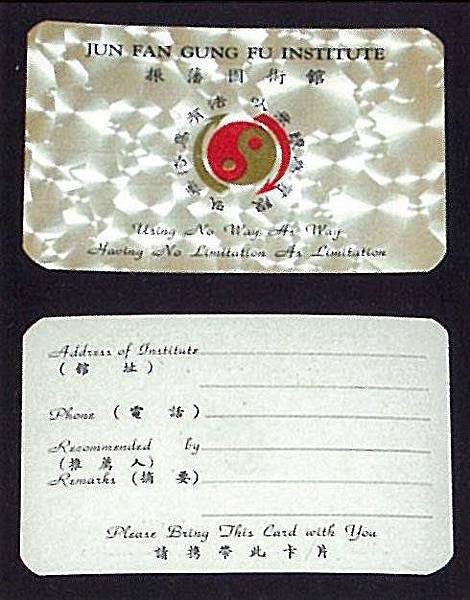 JUN FAN GUNG FU INSTITUTE
振藩國術館
以無法為有法
以無限為有限
Using No Way As Way
Having No Limitation As Limitation
Address of Institute
(館 址)
Phone (電 話)
Recommended by
(推薦人)
Remarks (摘 要)
Please Bring This Card with You
請攜帶此卡片